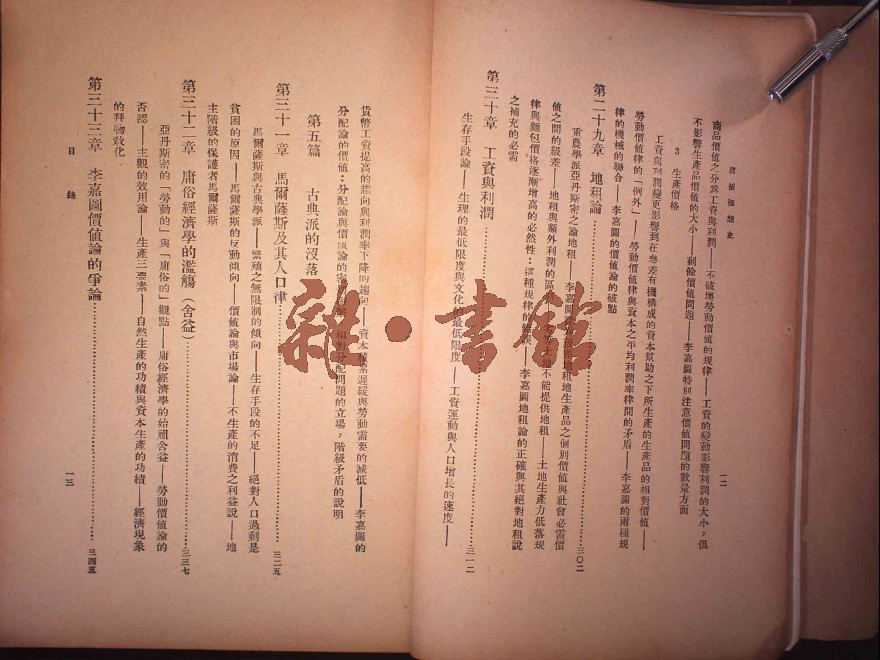 經濟思想史
一二
商品價值之分為工資與利潤——不破壞勞動價值的規律——工資的變動影響利潤的大小，但
不影響生產品價值的大小——剩餘價值問題——李嘉圖特別注意價值問題的數量方面
3 生產價格
工資與利潤變更影響到在參差有機構成的資本幫助之下所生產的生產品的相對價值——
勞動價值律的「例外」——勞動價值律與資本之平均利潤率律間的矛盾——李嘉圖的兩種規
律的機械的聯合——李嘉圖的價值論的破點
第二十九章 地租論…………三〇二
重農學派亞丹斯密之論地租——李嘉圖 地租地生產品之個別價值與社會必需價
值之間的級差——地租與額外利潤的區 不能提供地租——土地生產力低落規
律與麵包價格逐漸增高的必然性：這種規律的 李嘉圖地租論的正確與其絕對地租說
之補充的必需
第三十章 工資與利潤…………三一二
生存手段論——生理的最低限度與文化的最低限度——工資運動與人口增長的速度——
貨幣工資提高的趨向與利潤率下降的趨向——資本積累遲緩與勞動需要的減低——李嘉圖的
分配論的價值：分配論與價值論的密 相對分配問題的立場，階級矛盾的說明
第五篇 古典派的沒落
第三十一章 馬爾薩斯及其人口律…………三二五
馬爾薩斯與古典學派——繁殖之無限制的傾向——生存手段的不足——絕對人口過剩是
貧困的原因——馬爾薩斯的反動傾向——價值論與市場論——不生產的消費之利益說——地
主階級的保護者馬爾薩斯
第三十二章 庸俗經濟學的濫觴（舍益）…………三三七
亞丹斯密的「勞動的」與「庸俗的」觀點——庸俗經濟學的始祖舍益——勞動價值論的
否認——主觀的效用論——生產三要素——自然生產的功績與資本生產的功績——經濟現象
的拜物敎化
第三十三章 李嘉圖價值論的爭論…………三四五
目錄
一三
雜·書館